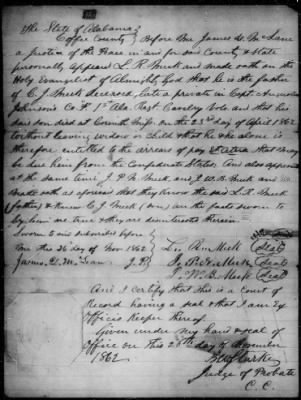 The State of Alabama
Coffee County } Before me James D. McLane
a Justice of the Peace in and for said County & State
personally appeared L. R. Meek and made oath on the
Holy Evangelist of Almighty God that he is the father
of C. J. Meek deceased, late a private in Capt
Johnson's Co F 1st Ala Regt Cavalry Vols and that his
said son died at Corinth Miss on the 23rd day of April 1862
without leaving widow or child & that he & he alone is
therefore entitled to the arrears of pay that may
be due him from the Confederate States. And also appeared
at the same time J. P. N. Meek and J. W. B. Meek and
made oath as aforesaid that they know the said L. R. Meek
(father) & knew C. J. Meek (son) and the facts sworn to
by him are true & they are disinterested therein
Sworn to and subscribed before
me this 26 day of Nov 1862
James D. McLane J.P.
L. R. Meek (seal)
J. P. N. Meek (seal)
J. W. B. Meek (seal)
And I certify that this is a court of
Record having a seal & that I am Ex
Officio keeper thereof.
Given under my hand & seal of
Office on this 26th day of November
1862
Clarke
Judge of Probate
C. C.